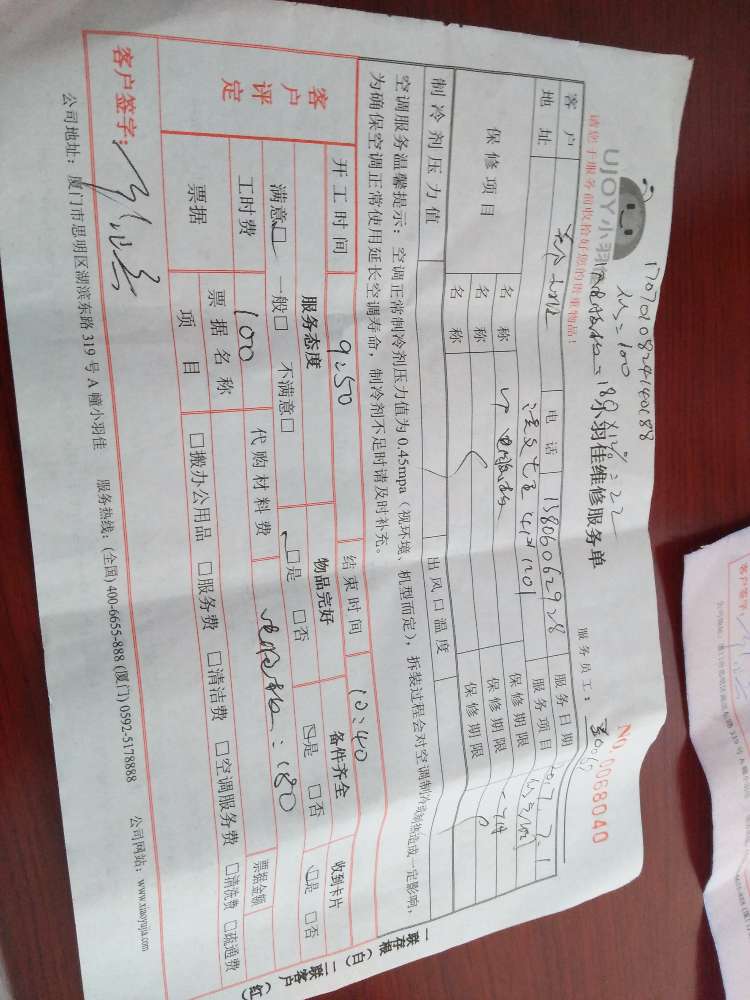 170701082414068
人工=100
UJOY小羽佳
小羽佳维修服务单
NO. 0068040
请您于服务前收拾好您的贵重物品！
服务员工：
客户
电话 13806062928
服务日期 2017.7.1
地址
1201
服务项目
保修项目
名称
电脑板
保修期限 一年
名称
保修期限
名称
保修期限
制冷剂压力值
出风口温度
空调服务温馨提示：空调正常制冷剂压力值为0.45mpa（视环境、机型而定），拆装过程会对空调制冷制热造成一定影响，
为确保空调正常使用延长空调寿命，制冷剂不足时请及时补充。
客户评定
开工时间 9:50
结束时间 10:40
服务态度
物品完好
备件齐全
收到卡片
满意□ 一般□ 不满意□
□是 □否
□是 □否
□是 □否
工时费 100
代购材料费 电脑板：180
票据
票据名称
票据金额
项目
□搬办公用品 □服务费 □清洁费 □空调服务费 □清洗费 □疏通费
客户签字：
一联存根（白） 二联客户（红）
公司地址：厦门市思明区湖滨东路319号A幢小羽佳 服务热线：(全国) 400-6655-888 (厦门) 0592-5178888 公司网站：www.xiaoyujia.com
客户签字：